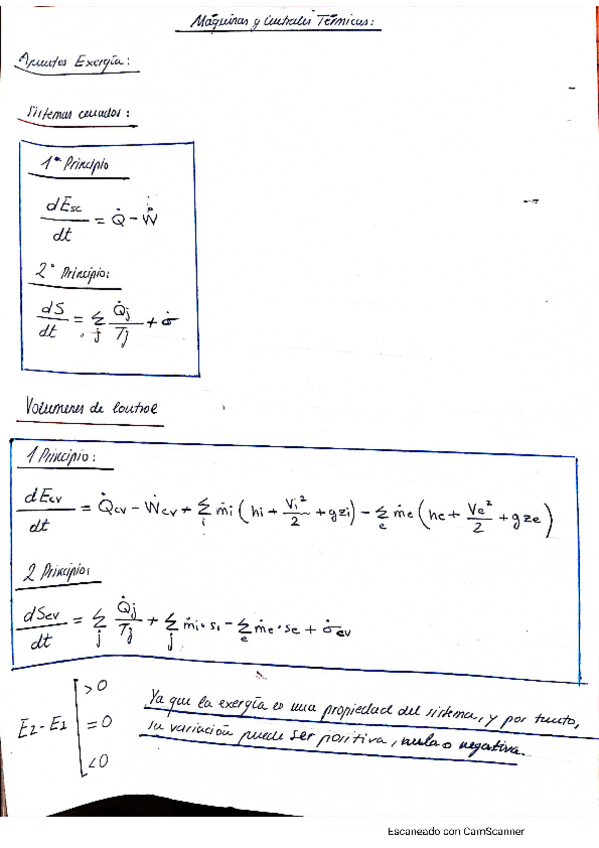 Máquinas y Centrales Térmicas:
Apuntes Exergía:
Sistemas cerrados:
1º Principio
dEsc/dt = Q̇ - Ẇ
2º Principio:
dS/dt = Σj Q̇j/Tj + σ̇
Volumenes de Control
1 Principio:
dEcv/dt = Q̇cv - Ẇcv + Σi ṁi (hi + Vi²/2 + gzi) - Σe ṁe (he + Ve²/2 + gze)
2 Principio:
dScv/dt = Σj Q̇j/Tj + Σj ṁi·si - Σe ṁe·se + σ̇cv
E2-E1 [ >0
=0
<0
Ya que la exergía es una propiedad del sistema, y por tanto,
su variación puede ser positiva, nula o negativa.
Escaneado con CamScanner